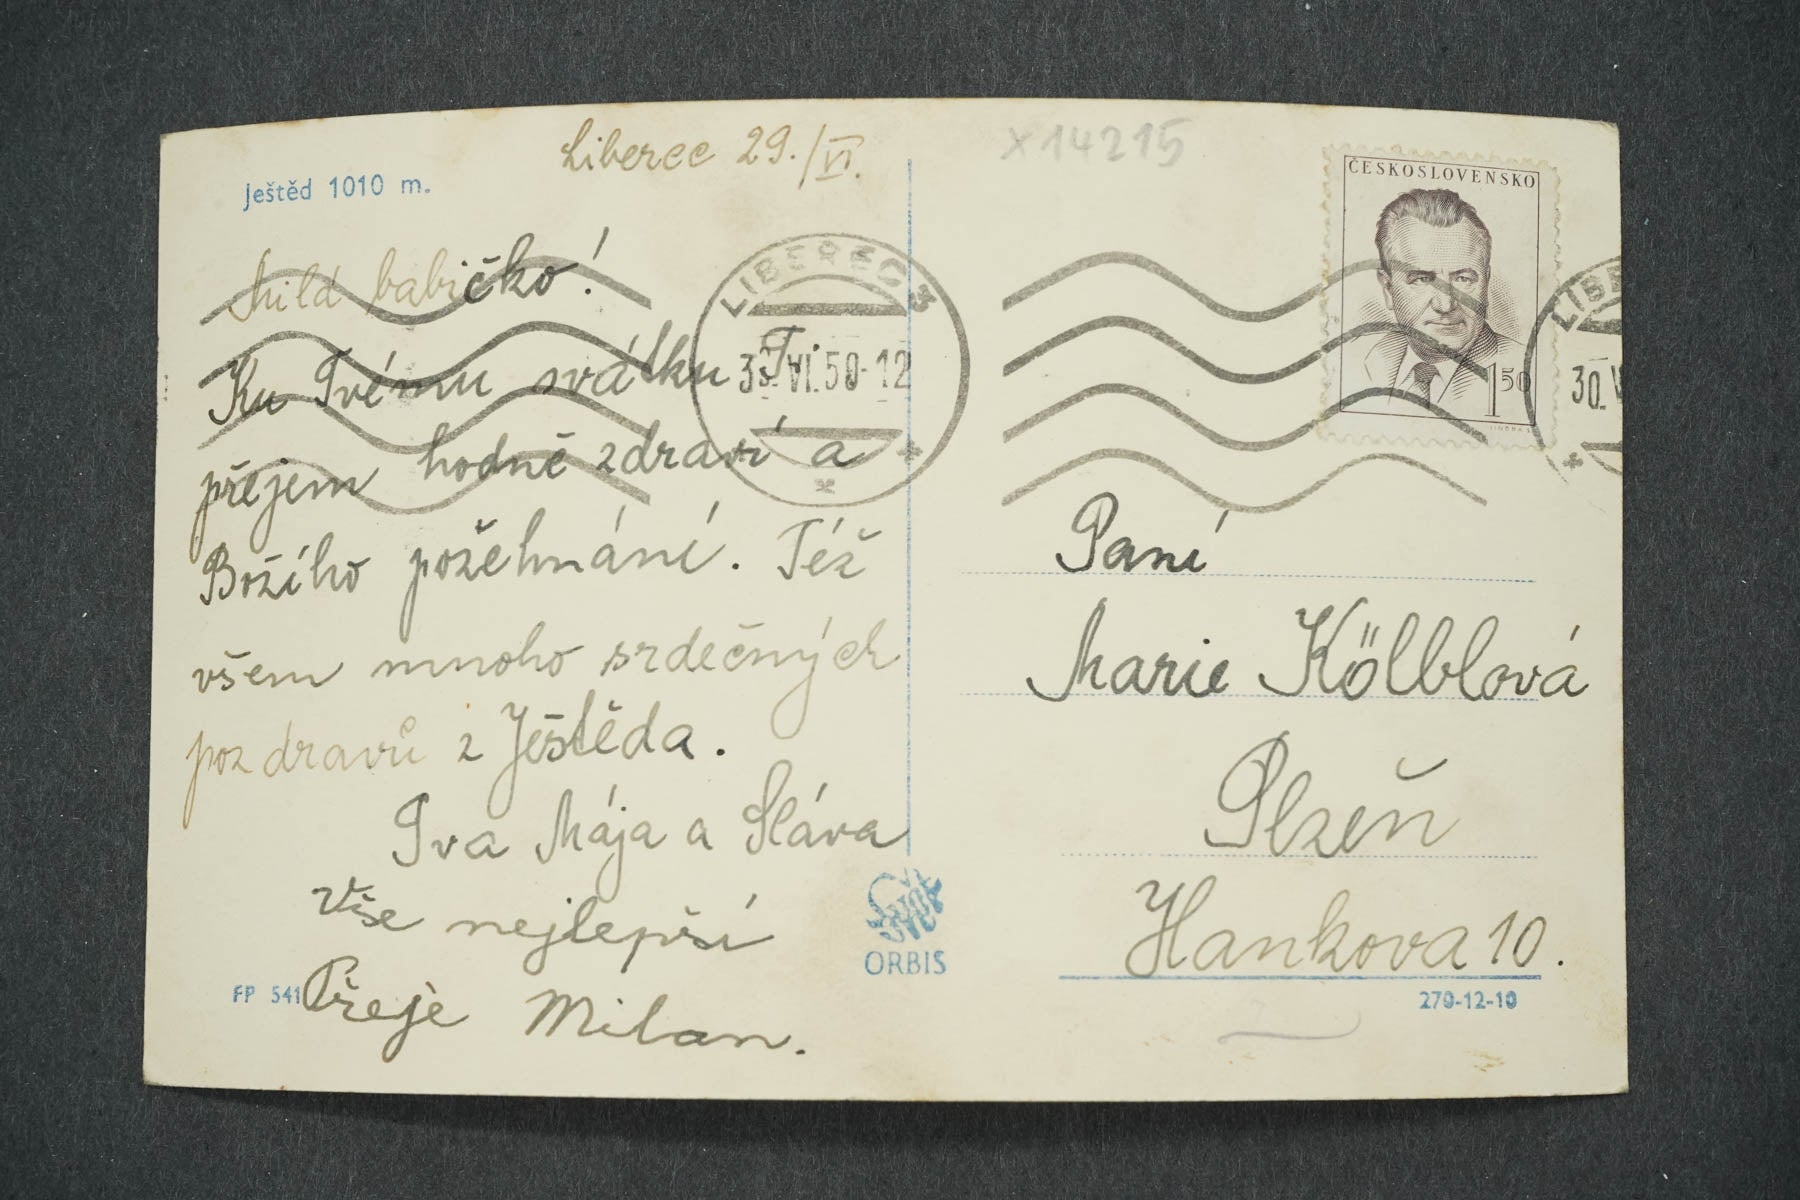 Liberec 29./VI.
Ještěd 1010 m.
Milá babičko!
Ku Tvému svátku Ti
přejem hodně zdraví a
Božího požehnání. Též
všem mnoho srdečných
pozdravů z Ještěda.
Iva Mája a Sláva
Vše nejlepší
Přeje Milan.
FP 541
LIBEREC 3
30. VI. 50-12
ORBIS
X14215
ČESKOSLOVENSKO
150
LIBE
30. V
Paní
Marie Kölblová
Plzeň
Hankova 10.
270-12-10